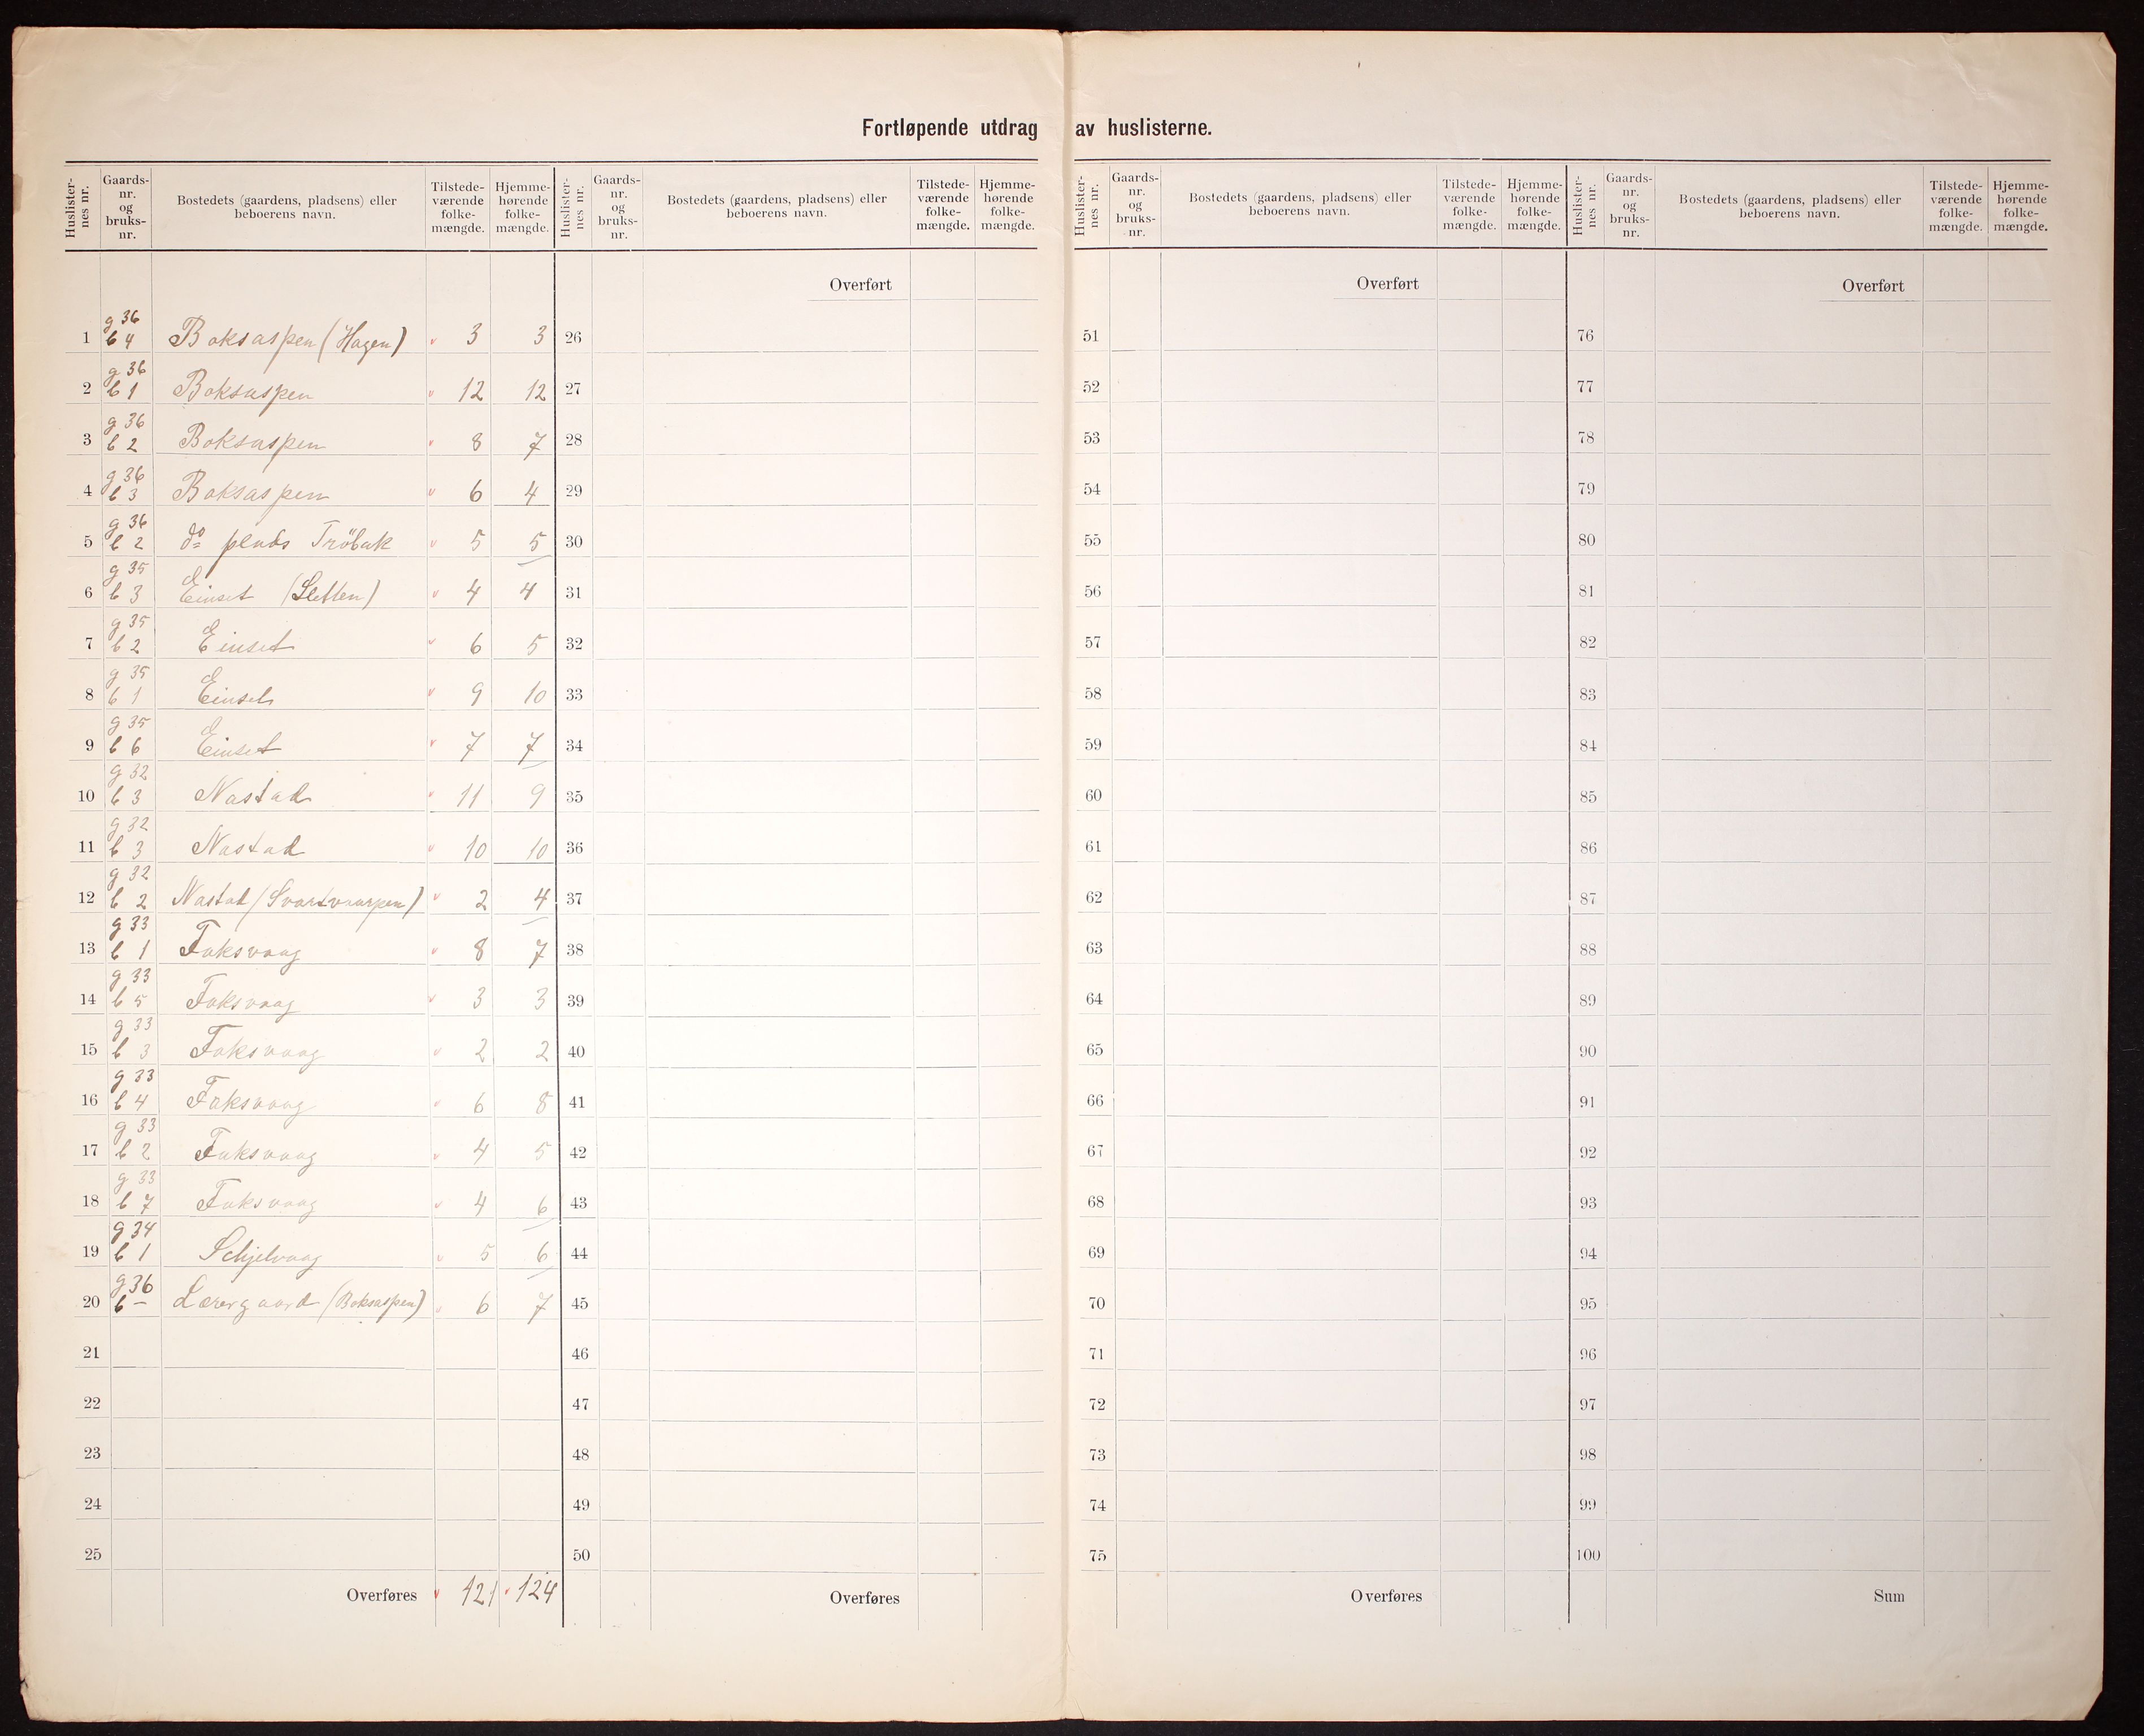 Fortløpende utdrag av huslisterne.
Huslisternes nr. Gaards-nr. og bruks-nr. Bostedets (gaardens, pladsens) eller beboerens navn. Tilstede-værende folke-mængde. Hjemme-hørende folke-mængde.
Huslisternes nr. Gaards-nr. og bruks-nr. Bostedets (gaardens, pladsens) eller beboerens navn. Tilstede-værende folke-mængde. Hjemme-hørende folke-mængde.
Huslisternes nr. Gaards-nr. og bruks-nr. Bostedets (gaardens, pladsens) eller beboerens navn. Tilstede-værende folke-mængde. Hjemme-hørende folke-mængde.
Huslisternes nr. Gaards-nr. og bruks-nr. Bostedets (gaardens, pladsens) eller beboerens navn. Tilstede-værende folke-mængde. Hjemme-hørende folke-mængde.
Overført Overført Overført
1 g 36 b 4 Boksaspen (Hagen) 3 3 26 51 76
2 g 36 b 1 Boksaspen 12 12 27 52 77
3 g 36 b 2 Boksaspen 8 7 28 53 78
4 g 36 b 3 Boksaspen 6 4 29 54 79
5 g 36 b 2 do plads Tröbak 5 5 30 55 80
6 g 35 b 3 Einset (Sletten) 4 4 31 56 81
7 g 35 b 2 Einset 6 5 32 57 82
8 g 35 b 1 Einset 9 10 33 58 83
9 g 35 b 6 Einset 7 7 34 59 84
10 g 32 b 3 Nastad 11 9 35 60 85
11 g 32 b 3 Nastad 10 10 36 61 86
12 g 32 b 2 Nastad (Svartvaarpen) 2 4 37 62 87
13 g 33 b 1 Faksvaag 8 7 38 63 88
14 g 33 b 5 Faksvaag 3 3 39 64 89
15 g 33 b 3 Faksvaag 2 2 40 65 90
16 g 33 b 4 Faksvaag 6 8 41 66 91
17 g 33 b 2 Faksvaag 4 5 42 67 92
18 g 33 b 7 Faksvaag 4 6 43 68 93
19 g 34 b 1 Schjelvaag 5 6 44 69 94
20 g 36 b – Lærergaard (Boksaspen) 6 7 45 70 95
21 46 71 96
22 47 72 97
23 48 73 98
24 49 74 99
25 50 75 100
Overføres 121 124 Overføres Overføres Sum